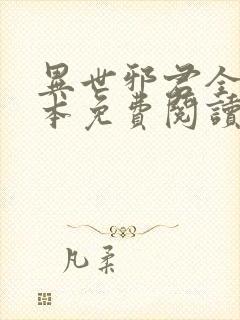 異世邪君全
本免費閱讀
凡柔